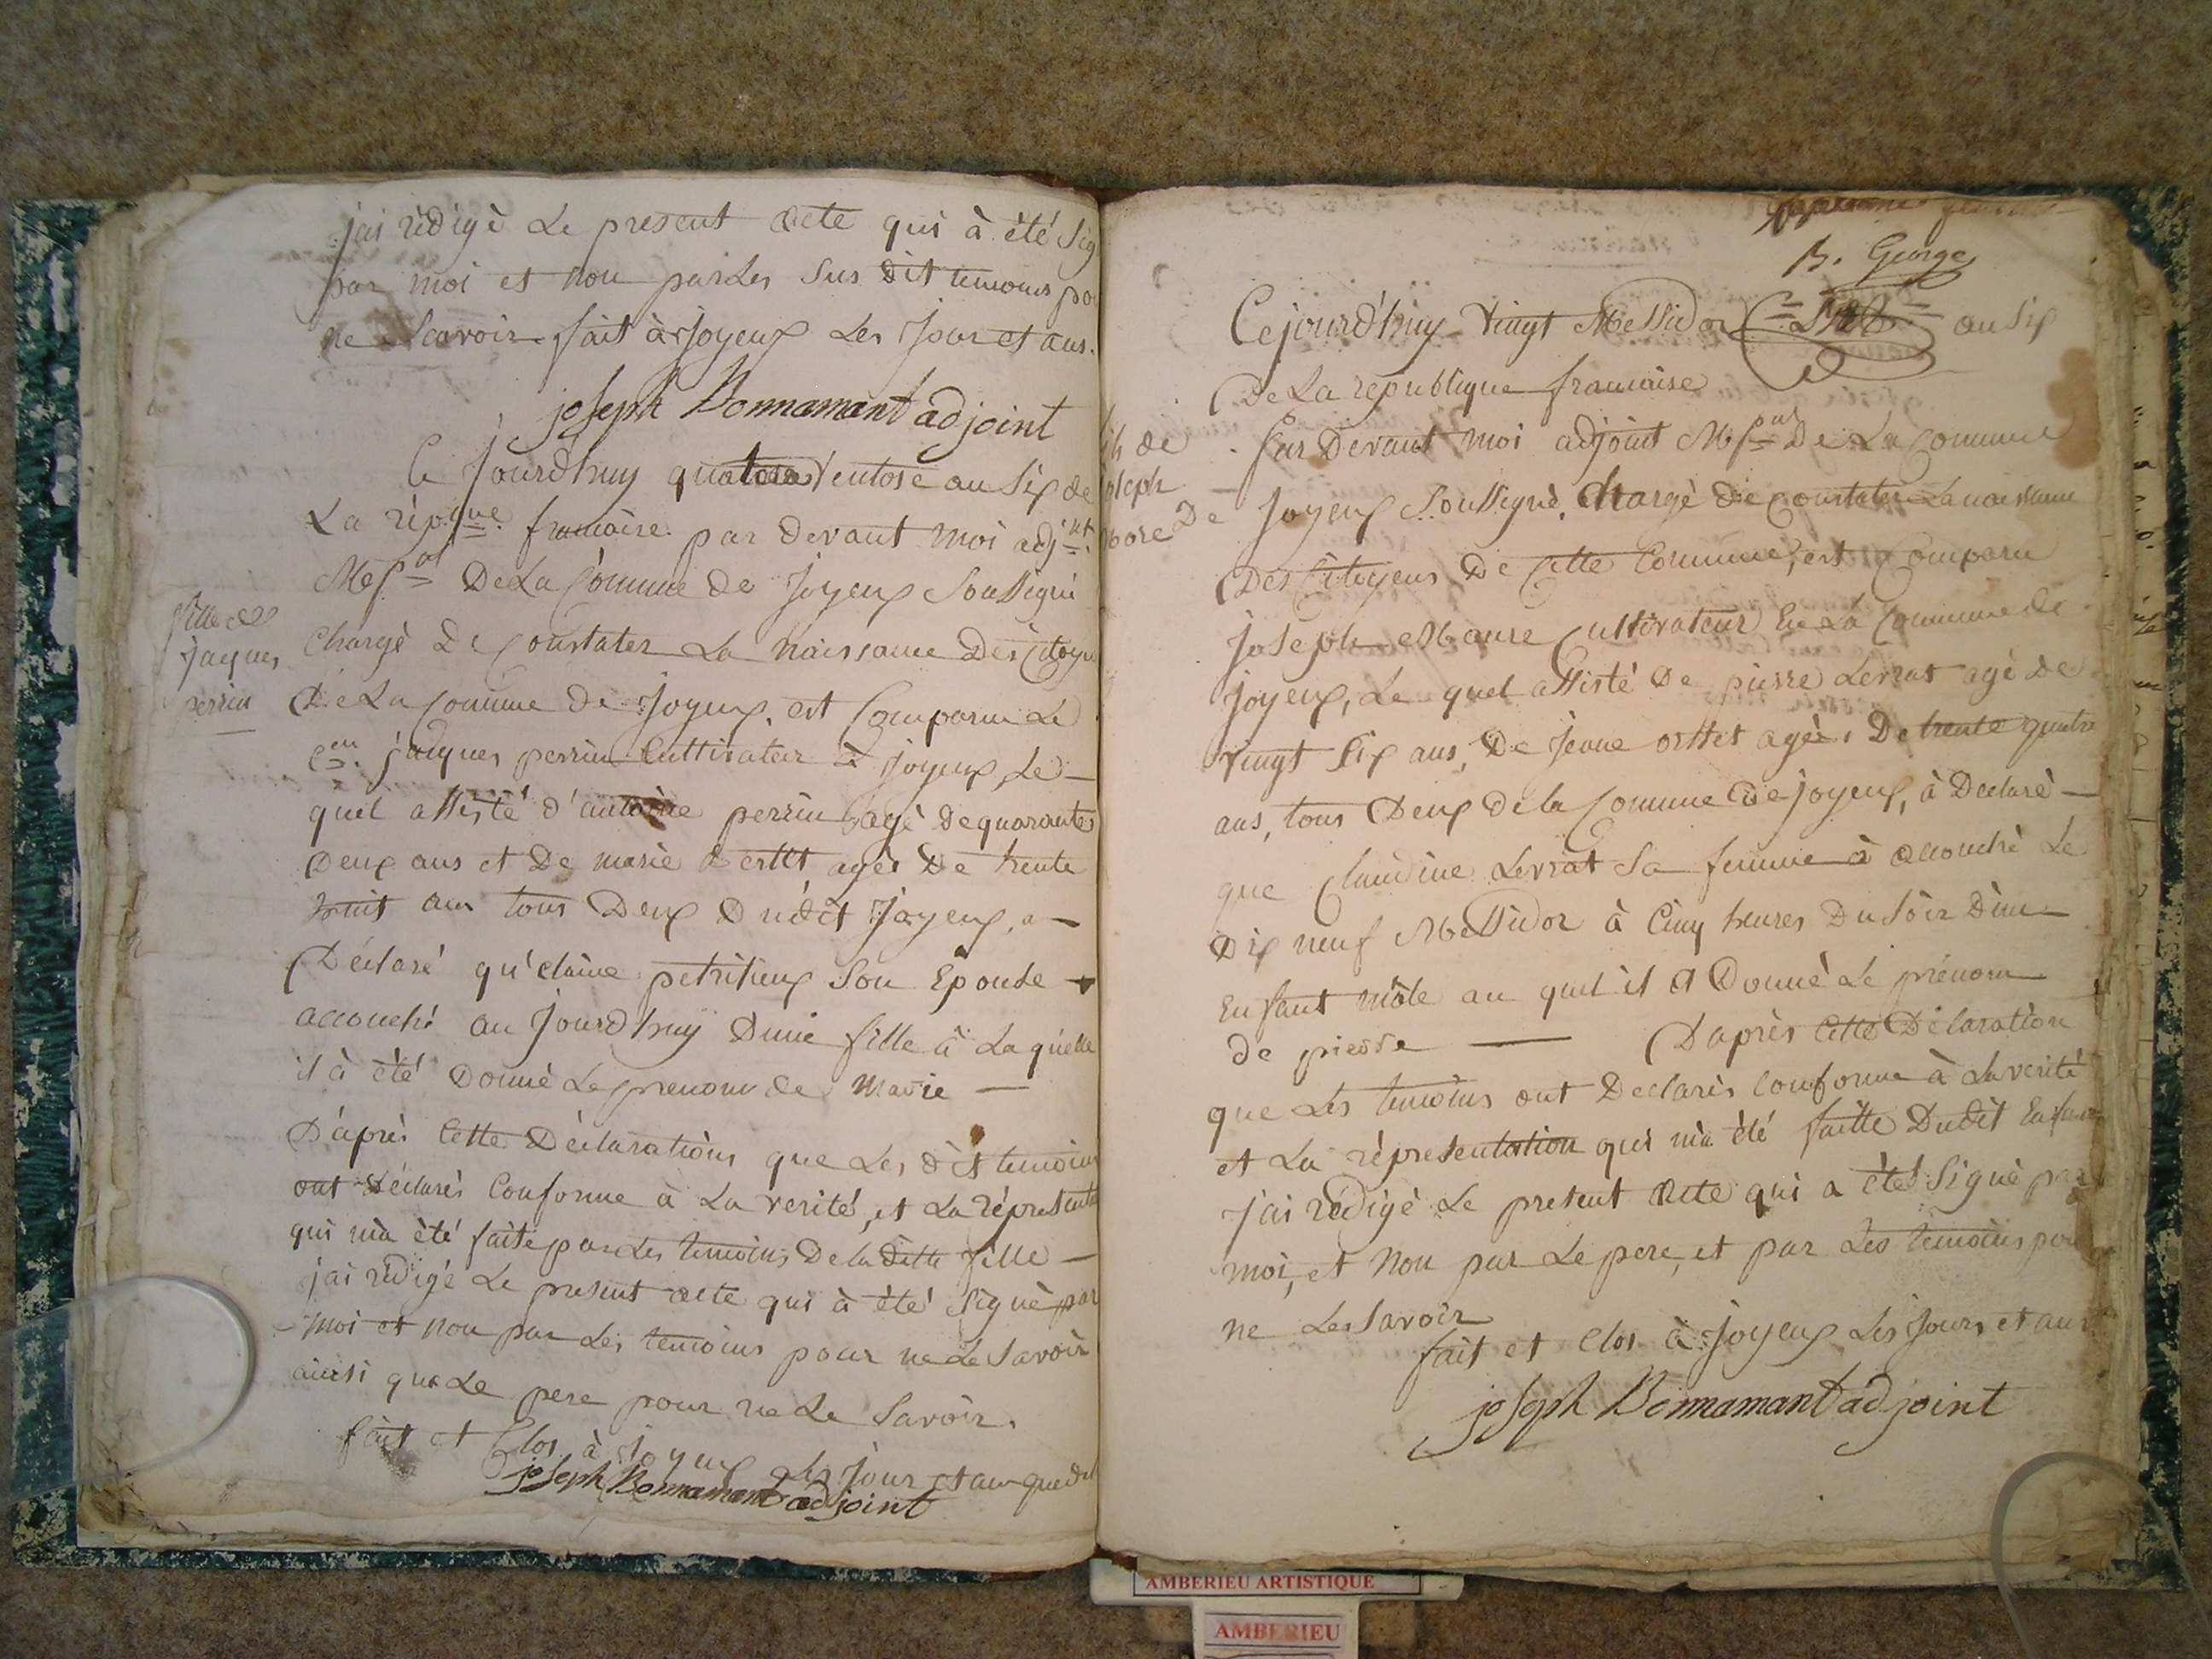 jai rèdigè Le present acte qui à été sig
par moi et non par Les sus dit temoins po
ne Savoir fait à Joyeux Les Jour et ans.
joseph Bonnamant adjoint
Ce jourdhuy quatorze Ventose an Six de
La répque. francaise. par devant moi adjnt.
Mepal De La Commune de Joyeux Soussigné
Fille de
jaques
perrin
Chargè De Constater La naissance Des Citoyn
De La Commune de Joyeux, est Comparu Le
Cen. jacques perrin Cultivateur à joyeux, Le
quel assisté d'antoine perrin agè de quarante
Deux ans et De marie agée De trente
huit ans tous Deux Dudit Joyeux, a
Déclaré qu'claine son Epouse
accouché au Jourdhuy Dune fille à Laquelle
il à été Donné Le prenom de Marie —
D'après Cette Déclarations que Les dits temoins
ont Déclarès Conforme à La verité, et La réprésenta
qui m'a été faite par Les temoins De ladite fille —
j'ai rédigé Le present acte qui à été signè par
moi et non par Les temoins pour ne Le Savoir
ainsi que Le pere pour ne Le Savoir.
fait et Clos à Joyeux Les Jour et an que d
joseph Bonnamant adjoint
B. George
Cejourd'huy Vingt Messidor an Six
De La république francaise
fils de
joseph
More
Par Devant moi adjoint Mepal De La Commune
De Joyeux Soussignè, Chargè de Constater La naissance
Des Citoyens De Cette Commune, est Comparu
Joseph More Cultivateur En La Commune de
Joyeux, Le quel assisté De pierre Levrat agé De
vingt Six ans, De Jeane agée, De trente quatre
ans, tous Deux de la Commune De joyeux, à Declarè —
que Claudine Levrat Sa femme à accouchè Le
Dix neuf Messidor à Cinq heures Du Soir D'un
Enfant mâle au quel il A Donné Le prénom
de pierre — D'après Cette Déclaration
que Les temoins ont Declarès Conforme à La verité
et La rèpresentation qui m'a été faitte Dudit Enfant
j'ai rédigé Le present Acte qui a été Signè par
moi, et Non par Le pere, et par Les temoins pour
ne Le Savoir
fait et Clos à Joyeux Les Jours et an
joseph Bonnamant adjoint
AMBERIEU ARTISTIQUE
AMBERIEU